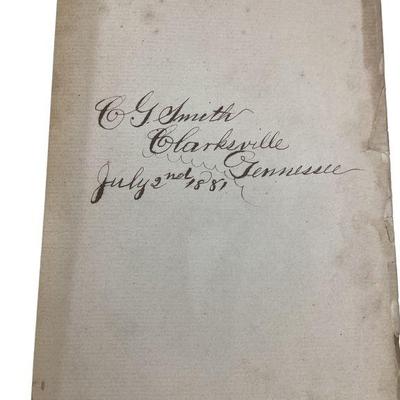 C G Smith
Clarksville
Tennessee
July 2nd 1881